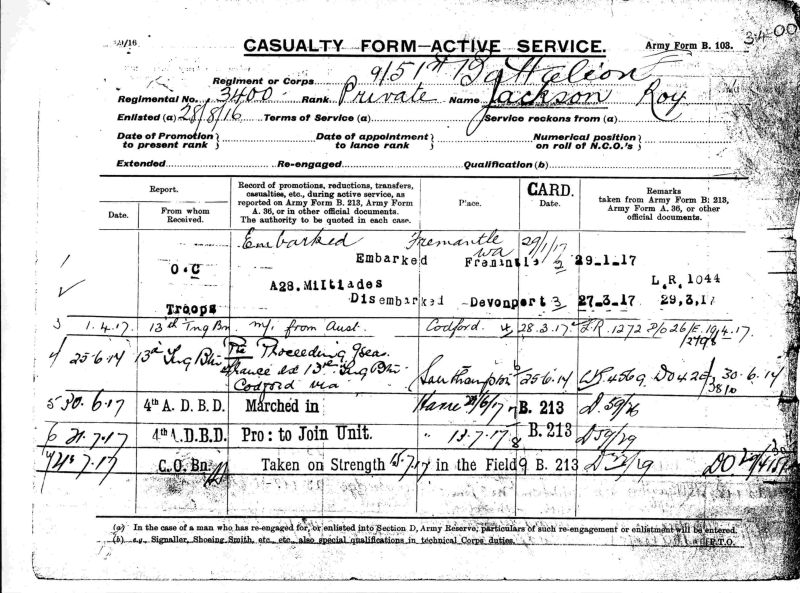 3400
CASUALTY FORM—ACTIVE SERVICE.
Army Form B. 103.
Regiment or Corps 9/51st Battalion
Regimental No. 3400 Rank Private Name Jackson Roy
Enlisted (a) 28/8/16 Terms of Service (a) Service reckons from (a)
Date of Promotion to present rank
Date of appointment to lance rank
Numerical position on roll of N.C.O.'s
Extended Re-engaged Qualification (b)
Report.
Date.
From whom Received.
Record of promotions, reductions, transfers,
casualties, etc., during active service, as
reported on Army Form B. 213, Army Form
A. 36, or in other official documents.
The authority to be quoted in each case.
Place.
CARD.
Date.
Remarks
taken from Army Form B. 213,
Army Form A. 36, or other
official documents.
Embarked Fremantle WA 29/1/17
Embarked 2 29-1-17
O.C
Troops
A28. Miltiades
L.R. 1044
Disembarked Devonport 3 27-3-17 29,3,17
3 1.4.17. 13th Tng Bn m/i from Aust. Codford. 4 28.3.17 L.R. 1272
4 13th Tng Btn Proceeding Oseas
France 13th Tng Btn
Codford via Southampton
5 30.6.17 4th A.D.B.D. Marched in B. 213 D.59/26
6 21.7.17 4th A.D.B.D. Pro: to Join Unit. " 13.7.17 8 B. 213 D59/29
7 21.7.17 C.O. Bn. Taken on Strength 15.7.17 in the Field 9 B. 213
(a) In the case of a man who has re-engaged for, or enlisted into Section D, Army Reserve, particulars of such re-engagement or enlistment will be entered.
(b) e.g., Signaller, Shoeing Smith, etc., etc., also special qualifications in technical Corps duties. P.T.O.